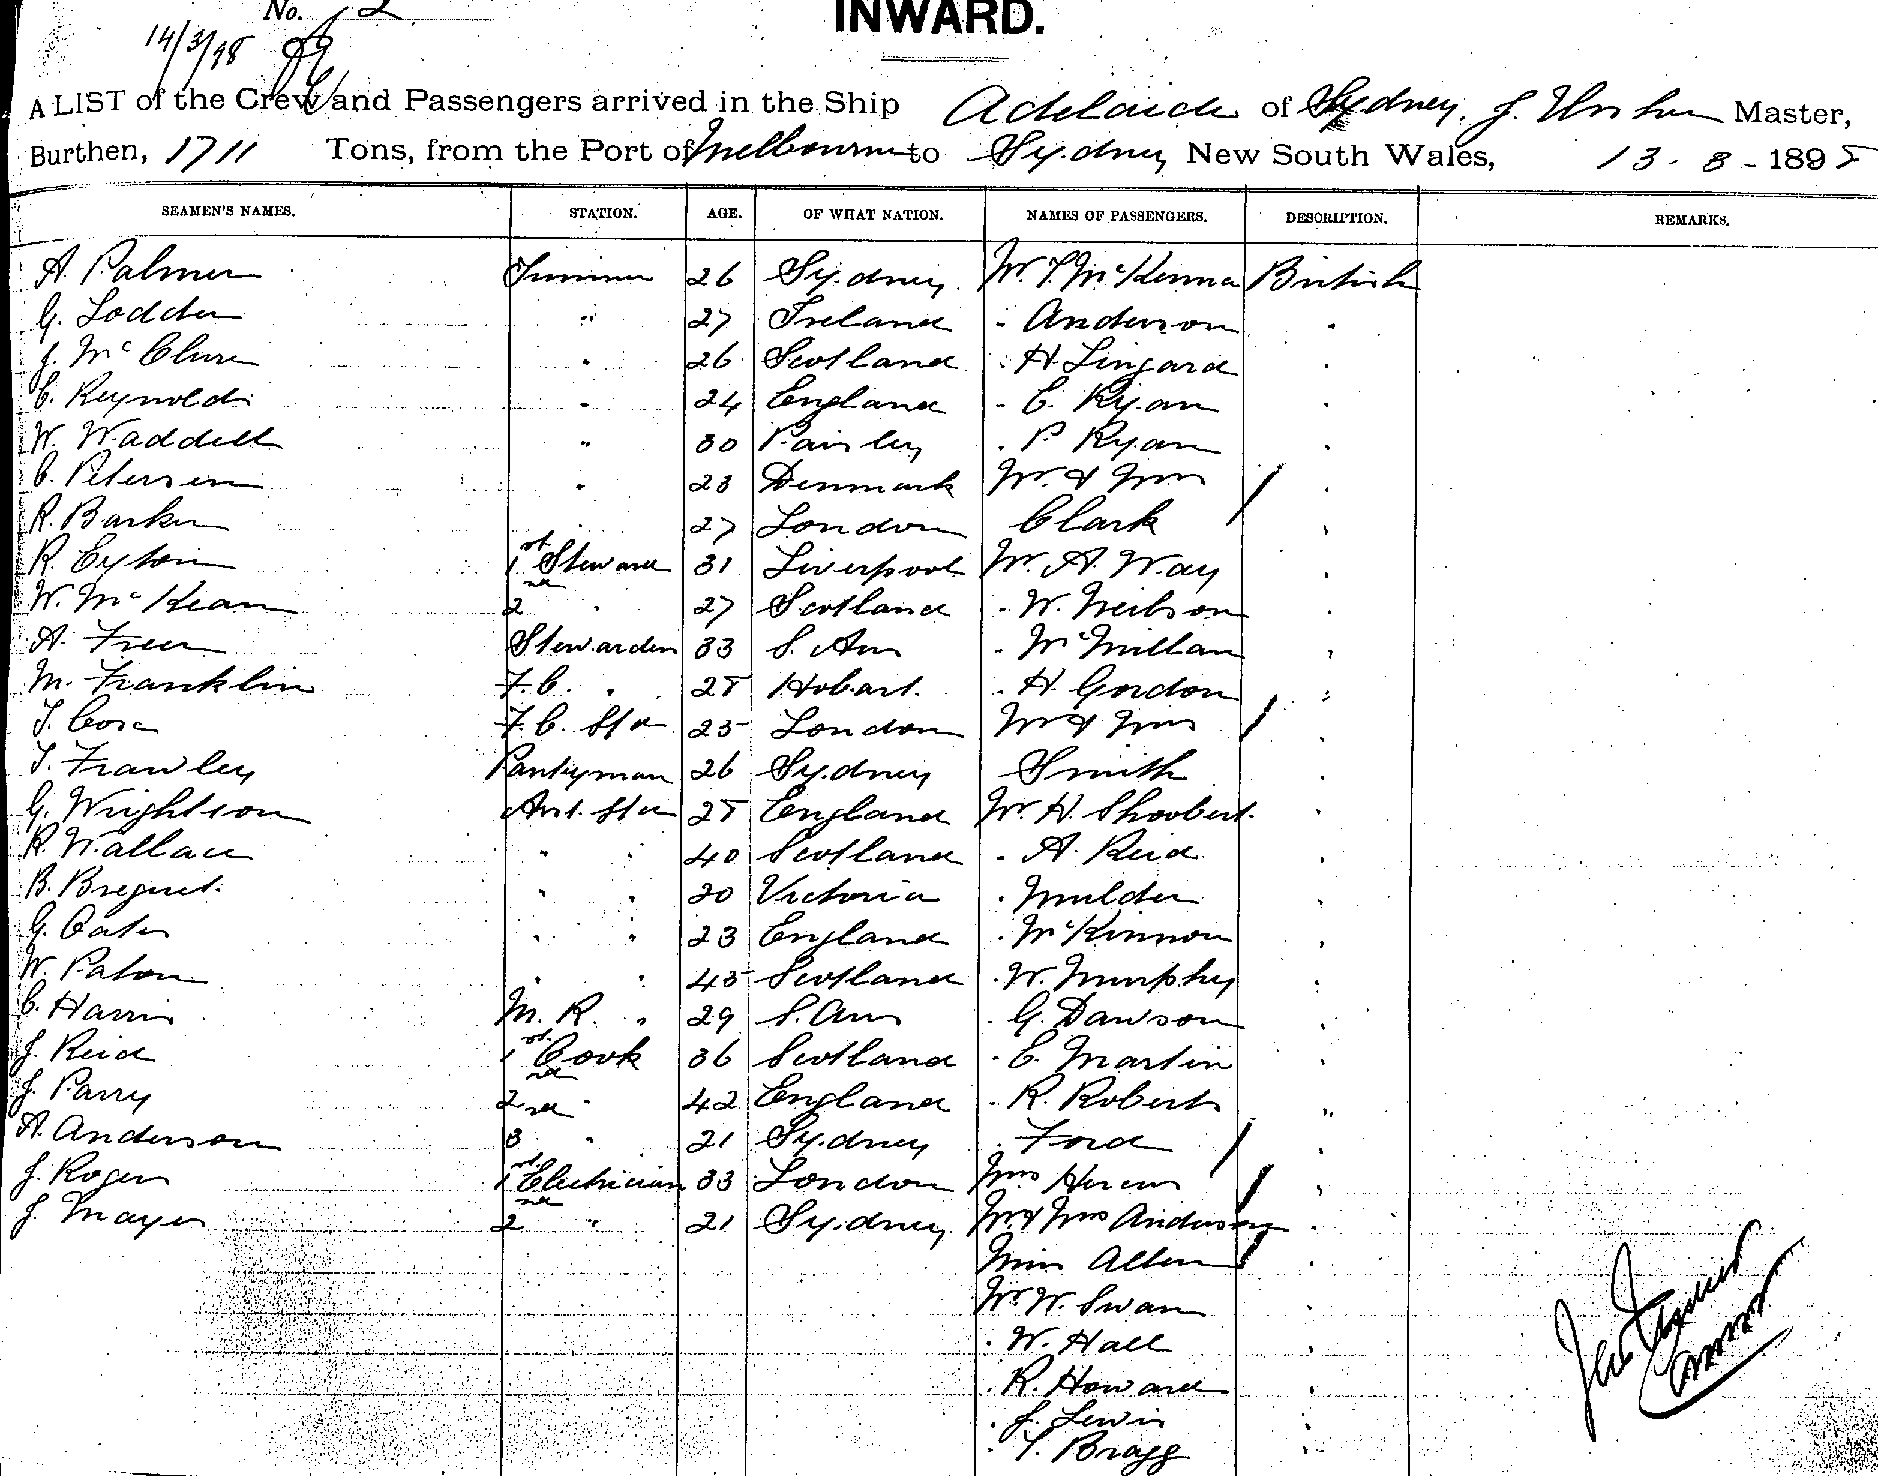 No. 2
14/3/98
INWARD.
A LIST of the Crew and Passengers arrived in the Ship Adelaide of Sydney, J. Master,
Burthen, 1711 Tons, from the Port of Melbourne to Sydney New South Wales, 13-8-1898
SEAMEN'S NAMES. STATION. AGE. OF WHAT NATION. NAMES OF PASSENGERS. DESCRIPTION. REMARKS.
A. Palmer Trimmer 26 Sydney Mr. T. McKenna British
G. Lodden " 27 Ireland " Anderson "
J. McClure " 26 Scotland " H Lingard "
C. Reynolds " 24 England " C. Ryan "
W. Waddell " 30 Paisley " P Ryan "
C. Petersen " 23 Denmark Mr. & Mrs "
R. Barker 27 London Clark "
R. Eyton 1st Steward 31 Liverpool Mr. A. Way "
W. McKean 2nd " 27 Scotland " W. Neilson "
A. Freer Stewardess 33 S. Aus " McMillan "
M. Franklin F.C. " 28 Hobart. " H. Gordon "
T. Cox F.C. Std 25 London Mr & Mrs "
T. Frawley Pantryman 26 Sydney Smith "
G. Wrightson Asst. Std 28 England Mr. H. Shoobert. "
R. Wallace " " 40 Scotland " A. Reid "
B. Breguet. " " 20 Victoria " Mulder "
G. Cates " " 23 England " McKinnon "
W. Paton " " 45 Scotland " W. Murphy "
C. Harris M. R. " 29 S. Aus " G. Dawson "
J. Reid 1st Cook 36 Scotland " C. Martin "
J. Parry 2nd " 42 England " R. Roberts "
A. Anderson 3rd " 21 Sydney " Ford "
J. Roger 1st Electrician 33 London Mrs "
J. Mayer 2nd " 21 Sydney Mr & Mrs Anderson "
Miss Allen "
Mr W. Swan "
" W. Hall "
" R. Howard "
" J. Lewis "
" T. Bragg "